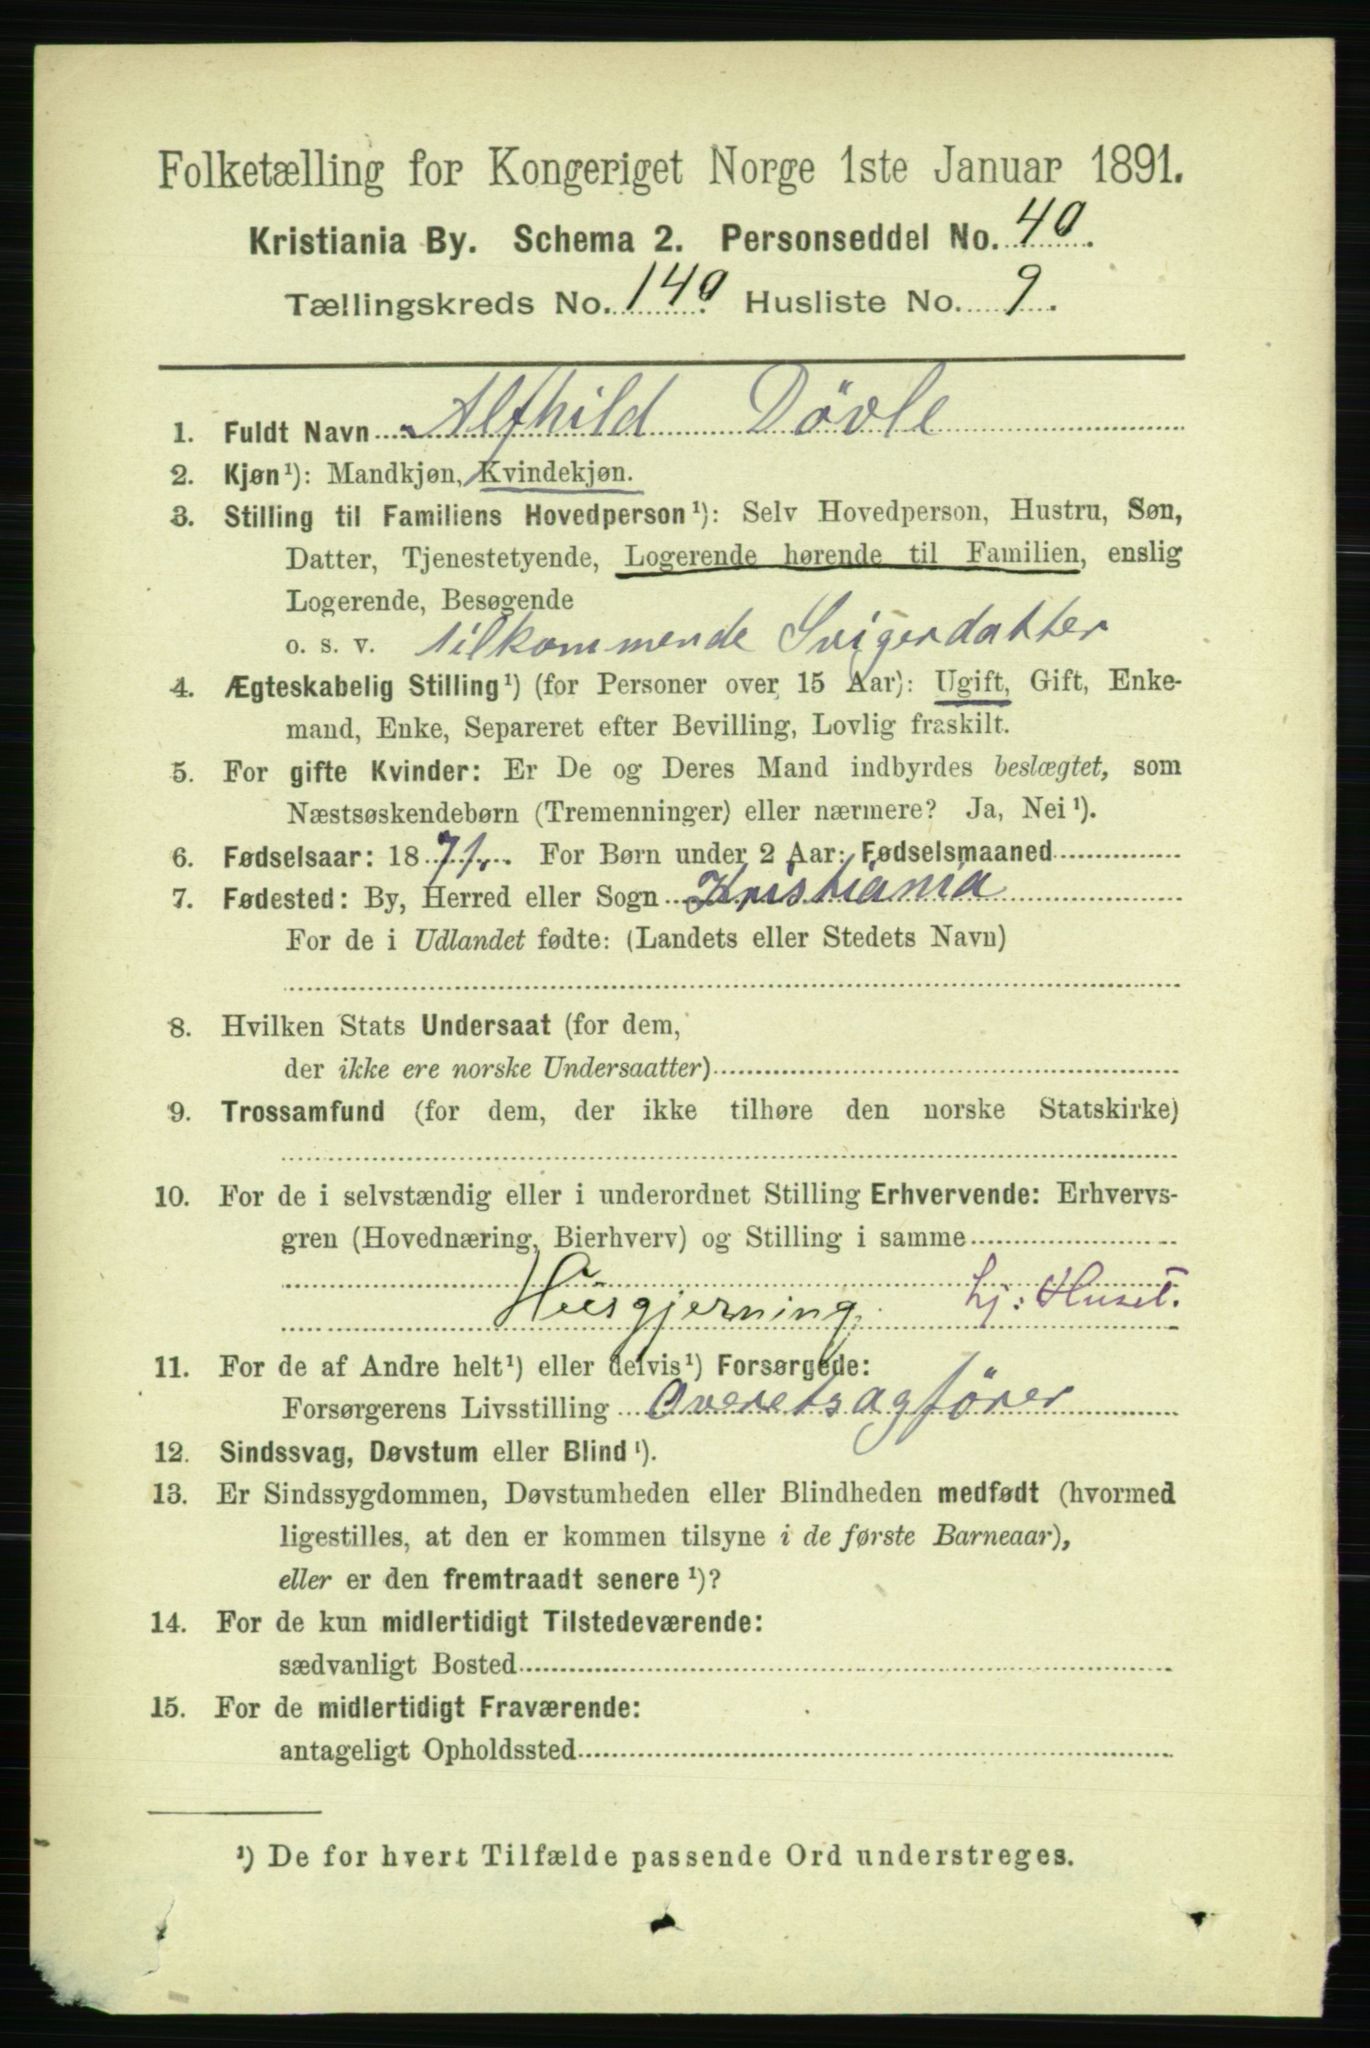 Folketælling for Kongeriget Norge 1ste Januar 1891.
Kristiania By. Schema 2. Personseddel No. 40.
Tællingskreds No. 140 Husliste No. 9.
1. Fuldt Navn Alfhild Dövle
2. Kjøn¹): Mandkjøn, Kvindekjøn.
3. Stilling til Familiens Hovedperson¹): Selv Hovedperson, Hustru, Søn,
Datter, Tjenestetyende, Logerende hørende til Familien, enslig
Logerende, Besøgende
o. s. v. tilkommende Svigerdatter
4. Ægteskabelig Stilling¹) (for Personer over 15 Aar): Ugift, Gift, Enke-
mand, Enke, Separeret efter Bevilling, Lovlig fraskilt.
5. For gifte Kvinder: Er De og Deres Mand indbyrdes beslægtet, som
Næstsøskendebørn (Tremenninger) eller nærmere? Ja, Nei¹).
6. Fødselsaar: 1871. For Børn under 2 Aar: Fødselsmaaned
7. Fødested: By, Herred eller Sogn Kristiania
For de i Udlandet fødte: (Landets eller Stedets Navn)
8. Hvilken Stats Undersaat (for dem,
der ikke ere norske Undersaatter)
9. Trossamfund (for dem, der ikke tilhøre den norske Statskirke)
10. For de i selvstændig eller i underordnet Stilling Erhvervende: Erhvervs-
gren (Hovednæring, Bierhverv) og Stilling i samme
Husgjerning. hj: Huset.
11. For de af Andre helt¹) eller delvis¹) Forsørgede:
Forsørgerens Livsstilling Overetsagfører
12. Sindssvag, Døvstum eller Blind¹).
13. Er Sindssygdommen, Døvstumheden eller Blindheden medfødt (hvormed
ligestilles, at den er kommen tilsyne i de første Barneaar),
eller er den fremtraadt senere¹)?
14. For de kun midlertidigt Tilstedeværende:
sædvanligt Bosted
15. For de midlertidigt Fraværende:
antageligt Opholdssted
¹) De for hvert Tilfælde passende Ord understreges.